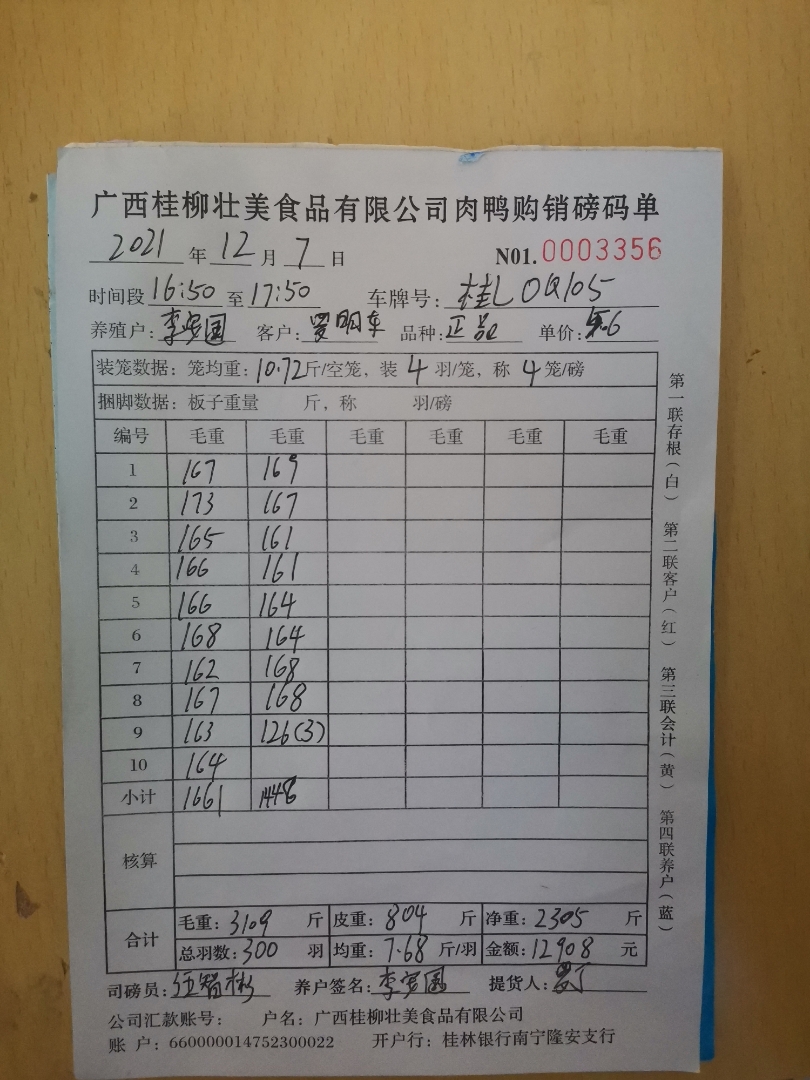 广西桂柳壮美食品有限公司肉鸭购销磅码单
2021 年 12 月 7 日 N01. 0003356
时间段 16:50 至 17:50 车牌号: 桂L0Q105
养殖户: 李宝国 客户: 罗明车 品种: 正品 单价: 5.6
装笼数据: 笼均重: 10.72 斤/空笼, 装 4 羽/笼, 称 4 笼/磅
捆脚数据: 板子重量 斤, 称 羽/磅
编号 毛重 毛重 毛重 毛重 毛重 毛重
1 167 169
2 173 167
3 165 161
4 166 161
5 166 164
6 168 164
7 162 168
8 167 168
9 163 126(3)
10 164
小计 1661 1448
核算
合计 毛重: 3109 斤 皮重: 804 斤 净重: 2305 斤
总羽数: 300 羽 均重: 7.68 斤/羽 金额: 12908 元
司磅员: 伍智彬 养户签名: 李宝国 提货人:
公司汇款账号: 户名: 广西桂柳壮美食品有限公司
账 户: 660000014752300022 开户行: 桂林银行南宁隆安支行
第一联存根(白) 第二联客户(红) 第三联会计(黄) 第四联养户(蓝)